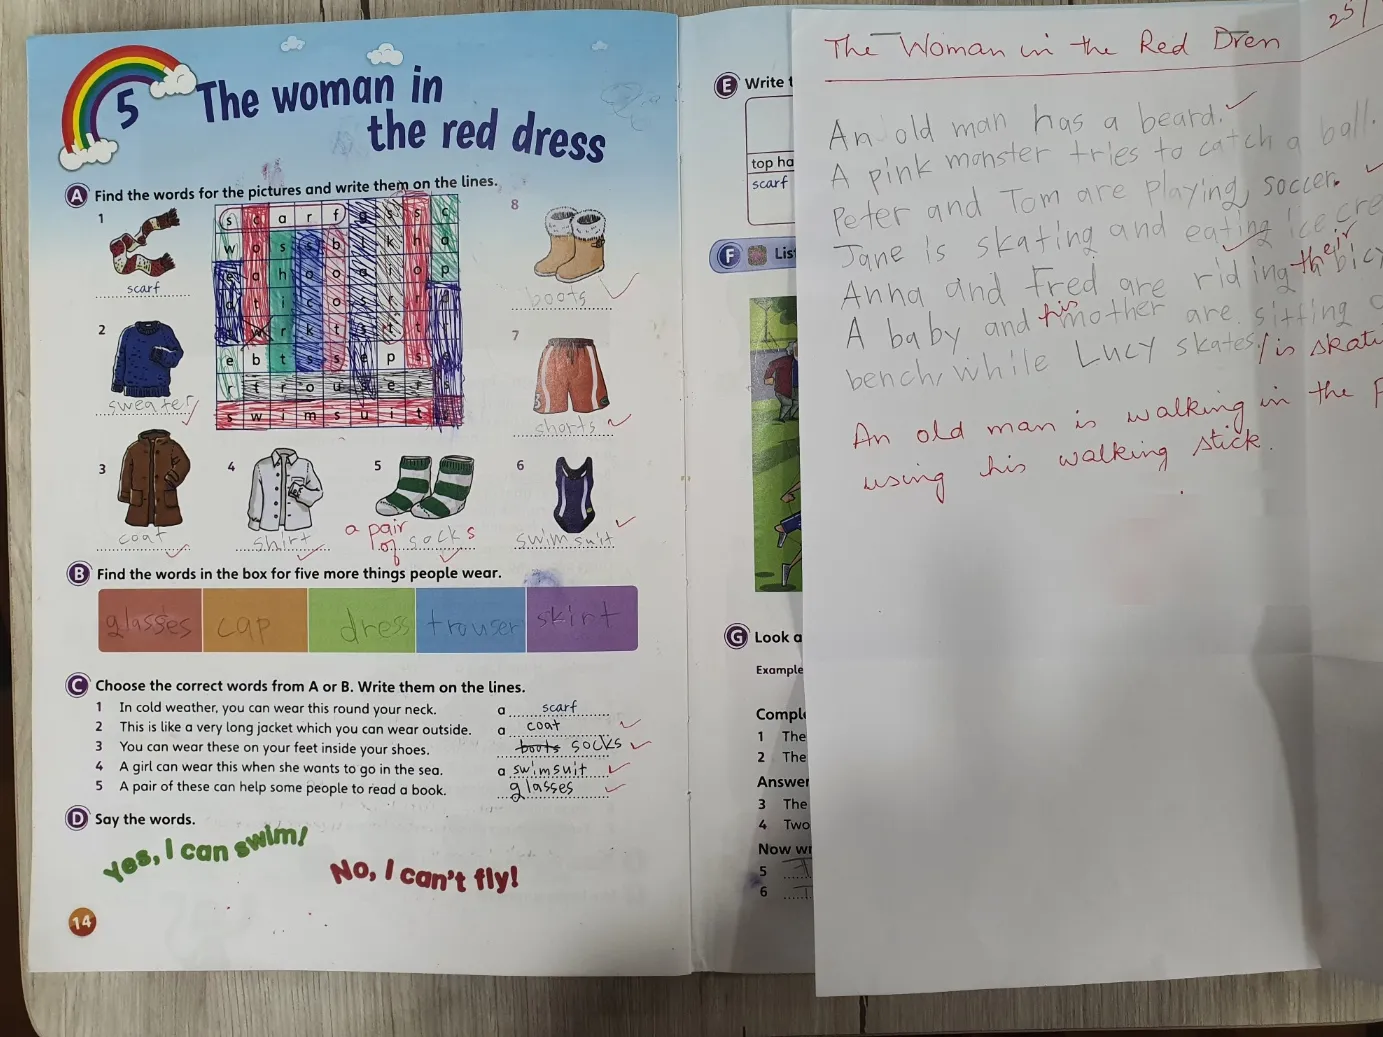 5
The woman in
the red dress
A Find the words for the pictures and write them on the lines.
1
scarf
2
sweater
3
coat
4
shirt
5
a pair
of socks
6
swimsuit
7
shorts
8
boots
s c a r f g s s c
w o s
e a h
t i
r k t
e b t s s e p s
r t r o u s e r s
s w i m s u i t
B Find the words in the box for five more things people wear.
glasses cap dress trouser skirt
C Choose the correct words from A or B. Write them on the lines.
1 In cold weather, you can wear this round your neck. a scarf
2 This is like a very long jacket which you can wear outside. a coat
3 You can wear these on your feet inside your shoes. boots socks
4 A girl can wear this when she wants to go in the sea. a swimsuit
5 A pair of these can help some people to read a book. glasses
D Say the words.
Yes, I can swim!
No, I can't fly!
14
E Write
top ha
scarf
F Lis
G Look a
Example
Compl
1 The
2 The
Answer
3 The
4 Two
Now wr
5
6
25/
The Woman in the Red Dren
An old man has a beard.
A pink monster tries to catch a ball.
Peter and Tom are playing soccer.
Jane is skating and eating ice cre
Anna and Fred are riding their bicy
A baby and his mother are sitting
bench, while Lucy skates. / is skati
An old man is walking in the p
using his walking stick.